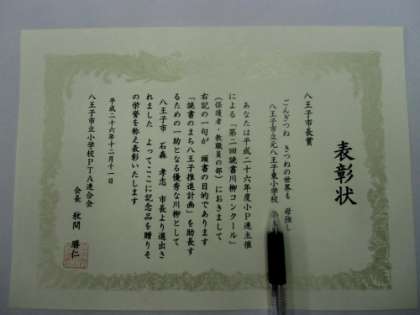 表彰状
八王子市長賞
ごんぎつね きつねの世界も 母強し
八王子市立元八王子東小学校
あなたは平成二十六年度小P連主催
による「第二回読書川柳コンクール」
(保護者・教職員の部)におきまして
右記の一句が 頭書の目的であります
「読書のまち八王子推進計画」を助長す
るための一助となる優秀な川柳として
八王子市 石森 孝志 市長より選出さ
れました よってここに記念品を贈りそ
の栄誉を称え表彰いたします
平成二十六年十二月十一日
八王子市立小学校PTA連合会
会長 秋間 勝仁